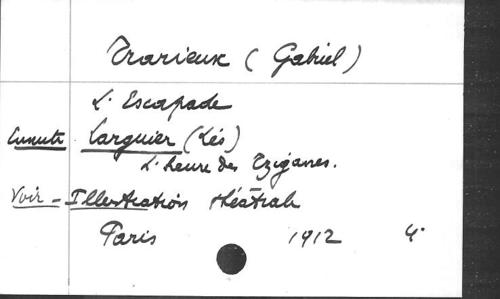 Trarieux (Gabriel)
L'Escapade
Ensuite Larguier (Lés)
L'heure des Tziganes.
Voir - Illustration théâtrale
Paris 1912 4°